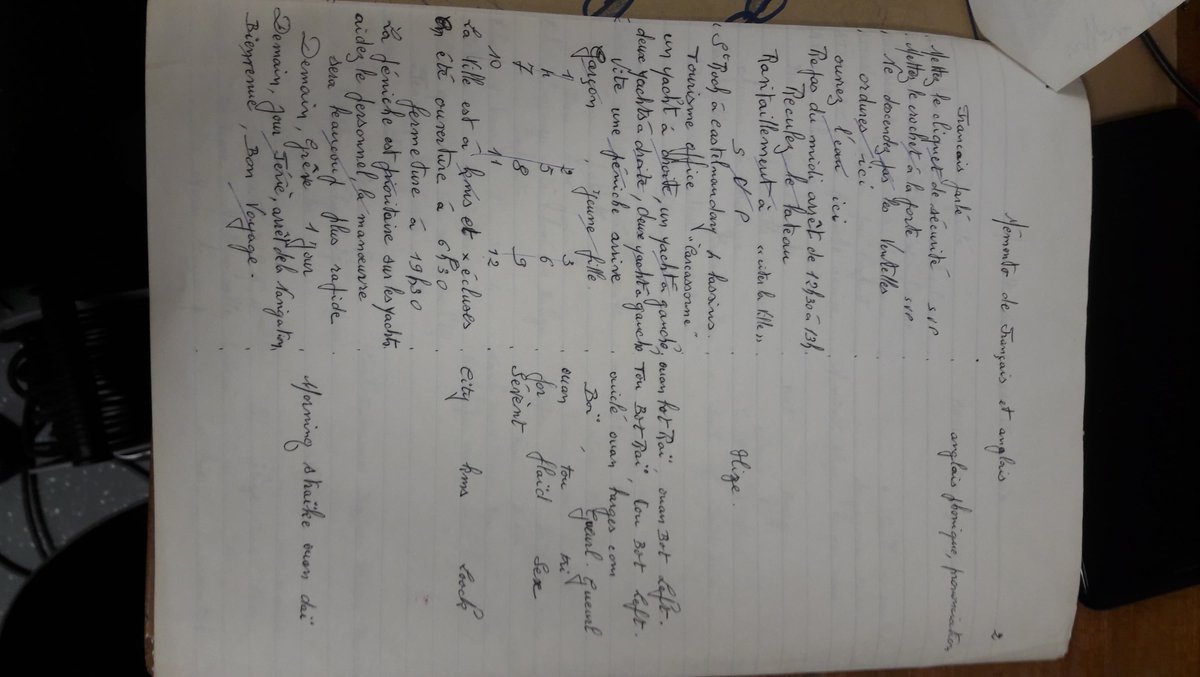 2
Mémento de Français et anglais
Francais parlé . anglais phonique, prononciation
. Mettez le cliquet de sécurité SVP
. Mettez le crochet à la porte SVP
. Ne descendez pas les Ventelles
. ordures ici
ouvrez l'eau ici
Repas du midi, arrêt de 12h30 à 13h.
Reculez le bateau
Ravitaillement à
S V P . Plize.
"St Roch à Castelnaudary 4 bassins.
Tourisme office "Carcassonne"
un yacht à droite, un yacht à gauche, ouan bot Raï, ouan Bot Left.
deux yachts à droite, deux yachts à gauche Tou Bot Raï, Tou Bot Left.
Vite une péniche arrive . ouan barges com
Garçon , Jeune fille . Boï , Gueurl. Gueurl
1 2 3 . ouan tou tri
4 5 6 . for faïd Sex
7 8 9 . Sévent
10 11 12 .
La Ville est à kms et x écluses . City kms Lock
En été ouverture à 6h30 .
fermeture à 19h30 .
La péniche est prioritaire sur les yachts.
aidez le personnel la manoeuvre
sera beaucoup plus rapide .
Demain, Grève 1 jour . Morning straïke ouan daï
Demain, jour Férié, arrêt de la Navigation,
Bienvenue, Bon Voyage. .